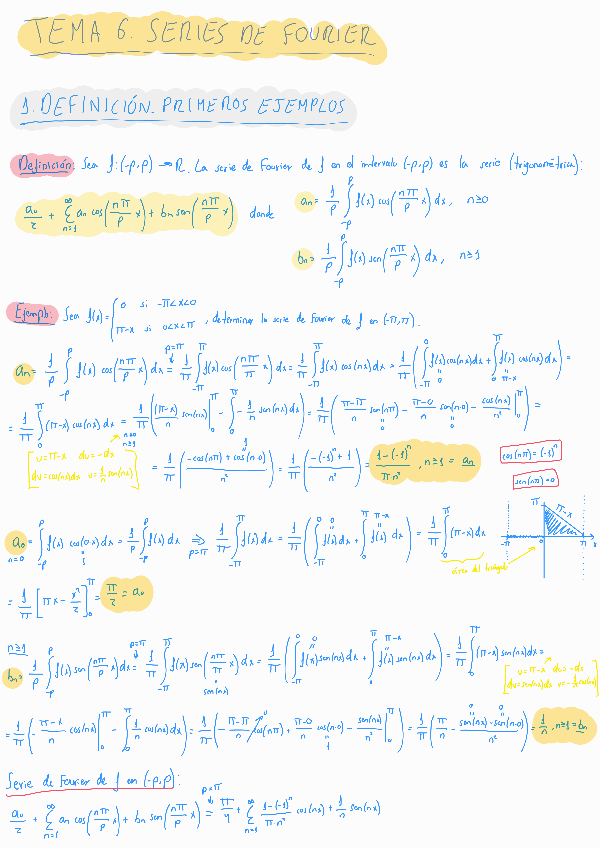 TEMA 6. SERIES DE FOURIER
1. DEFINICIÓN. PRIMEROS EJEMPLOS
Definición: Sea f: (-p,p) → R. La serie de Fourier de f en el intervalo (-p,p) es la serie (trigonométrica):
a₀/2 + Σ_{n=1}^{∞} aₙ cos(nπ/p x) + bₙ sen(nπ/p x) donde
aₙ = 1/p ∫_{-p}^{p} f(x) cos(nπ/p x) dx, n≥0
bₙ = 1/p ∫_{-p}^{p} f(x) sen(nπ/p x) dx, n≥1
Ejemplo: Sea f(x) = { 0 si -π<x<0
π-x si 0<x<π , determinar la serie de Fourier de f en (-π,π).
aₙ = 1/p ∫_{-p}^{p} f(x) cos(nπ/p x) dx = (p=π) 1/π ∫_{-π}^{π} f(x) cos(nπ/π x) dx = 1/π ∫_{-π}^{π} f(x) cos(nx) dx = 1/π (∫_{-π}^{0} f(x) cos(nx) dx + ∫_{0}^{π} f(x) cos(nx) dx) =
= 1/π ∫_{0}^{π} (π-x) cos(nx) dx = 1/π ((π-x)/n sen(nx) |_{0}^{π} - ∫_{0}^{π} -1/n sen(nx) dx) = 1/π ((π-π)/n sen(nπ) - (π-0)/n sen(n·0) - cos(nx)/n² |_{0}^{π}) =
[u=π-x du=-dx
dv=cos(nx)dx v=1/n sen(nx)]
= 1/π ((-cos(nπ)+cos(n·0))/n²) = 1/π ((-(-1)ⁿ+1)/n²) = (1-(-1)ⁿ)/(π·n²), n≥1 = aₙ
cos(nπ) = (-1)ⁿ
sen(nπ) = 0
a₀ = ∫_{-p}^{p} f(x) cos(0·x) dx = 1/p ∫_{-p}^{p} f(x) dx ⇒ (p=π) 1/π ∫_{-π}^{π} f(x) dx = 1/π (∫_{-π}^{0} f(x) dx + ∫_{0}^{π} f(x) dx) = 1/π ∫_{0}^{π} (π-x) dx
n=0
área del triángulo
π π-x
-π 0 π x
= 1/π [πx - x²/2]_{0}^{π} = π/2 = a₀
n≥1
bₙ = 1/p ∫_{-p}^{p} f(x) sen(nπ/p x) dx = (p=π) 1/π ∫_{-π}^{π} f(x) sen(nπ/π x) dx = 1/π (∫_{-π}^{0} f(x) sen(nx) dx + ∫_{0}^{π} f(x) sen(nx) dx) = 1/π ∫_{0}^{π} (π-x) sen(nx) dx =
[u=π-x du=-dx
dv=sen(nx)dx v=-1/n cos(nx)]
= 1/π (-(π-x)/n cos(nx) |_{0}^{π} - ∫_{0}^{π} 1/n cos(nx) dx) = 1/π (-(π-π)/n cos(nπ) + (π-0)/n cos(n·0) - sen(nx)/n² |_{0}^{π}) = 1/π (π/n - (sen(nπ)-sen(n·0))/n²) = 1/n, n≥1 = bₙ
Serie de Fourier de f en (-p,p):
a₀/2 + Σ_{n=1}^{∞} aₙ cos(nπ/p x) + bₙ sen(nπ/p x) = (p=π) π/4 + Σ_{n=1}^{∞} (1-(-1)ⁿ)/(π·n²) cos(nx) + 1/n sen(nx)